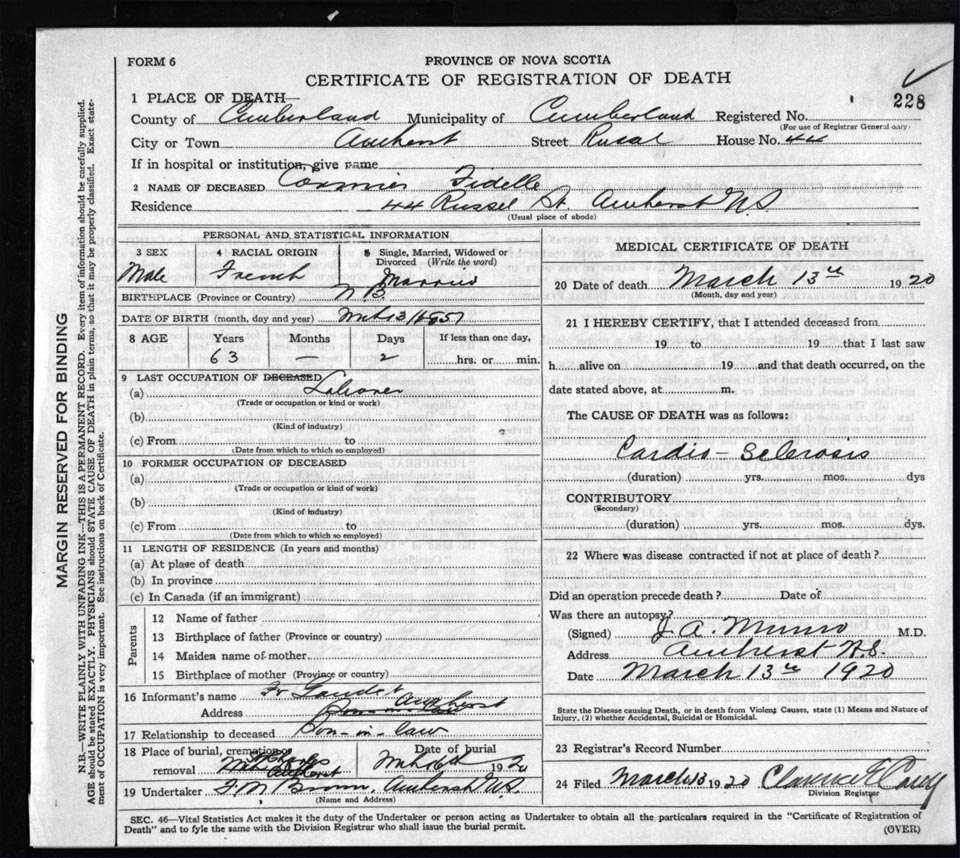 FORM 6
PROVINCE OF NOVA SCOTIA
CERTIFICATE OF REGISTRATION OF DEATH
228
1 PLACE OF DEATH—
County of Cumberland Municipality of Cumberland Registered No.
(For use of Registrar General only)
City or Town Amherst Street Rural House No. 44
If in hospital or institution, give name
2 NAME OF DECEASED Cormier Fidelle
Residence 44 Russel St. Amherst N.S
(Usual place of abode)
PERSONAL AND STATISTICAL INFORMATION
3 SEX 4 RACIAL ORIGIN 5 Single, Married, Widowed or Divorced (Write the word)
Male French Married
BIRTHPLACE (Province or Country) N B
DATE OF BIRTH (month, day and year)
8 AGE Years Months Days If less than one day,
63 — 2 hrs. or min.
9 LAST OCCUPATION OF DECEASED
(a)
(Trade or occupation or kind or work)
(b)
(Kind of industry)
(c) From to
(Date from which to which so employed)
10 FORMER OCCUPATION OF DECEASED
(a)
(Trade or occupation or kind of work)
(b)
(Kind of industry)
(c) From to
(Date from which to which so employed)
11 LENGTH OF RESIDENCE (In years and months)
(a) At place of death
(b) In province
(c) In Canada (if an immigrant)
Parents
12 Name of father
13 Birthplace of father (Province or country)
14 Maiden name of mother
15 Birthplace of mother (Province or country)
16 Informant's name Gaudet
Address Amherst
17 Relationship to deceased Son-in-law
18 Place of burial, cremation or removal Amherst Date of burial 1920
19 Undertaker F. M. Brown, Amherst N.S.
(Name and Address)
MEDICAL CERTIFICATE OF DEATH
20 Date of death March 13th 1920
(Month, day and year)
21 I HEREBY CERTIFY, that I attended deceased from
19 to 19 that I last saw
h alive on 19 and that death occurred, on the
date stated above, at m.
The CAUSE OF DEATH was as follows:
Cardio-Sclerosis
(duration) yrs. mos. dys
CONTRIBUTORY
(Secondary)
(duration) yrs. mos. dys.
22 Where was disease contracted if not at place of death?
Did an operation precede death? Date of
Was there an autopsy?
(Signed) J. A. Munro M.D.
Address Amherst N.S.
Date March 13th 1920
State the Disease causing Death, or in death from Violent Causes, state (1) Means and Nature of
Injury, (2) whether Accidental, Suicidal or Homicidal.
23 Registrar's Record Number
24 Filed March 13 1920 Clarence E.
Division Registrar
SEC. 46—Vital Statistics Act makes it the duty of the Undertaker or person acting as Undertaker to obtain all the particulars required in the "Certificate of Registration of
Death" and to fyle the same with the Division Registrar who shall issue the burial permit.
(OVER)
MARGIN RESERVED FOR BINDING
N.B.—WRITE PLAINLY WITH UNFADING INK—THIS IS A PERMANENT RECORD. Every item of information should be carefully supplied.
AGE should be stated EXACTLY. PHYSICIANS should STATE CAUSE OF DEATH in plain terms, so that it may be properly classified. Exact state-
ment of OCCUPATION is very important. See instructions on back of Certificate.